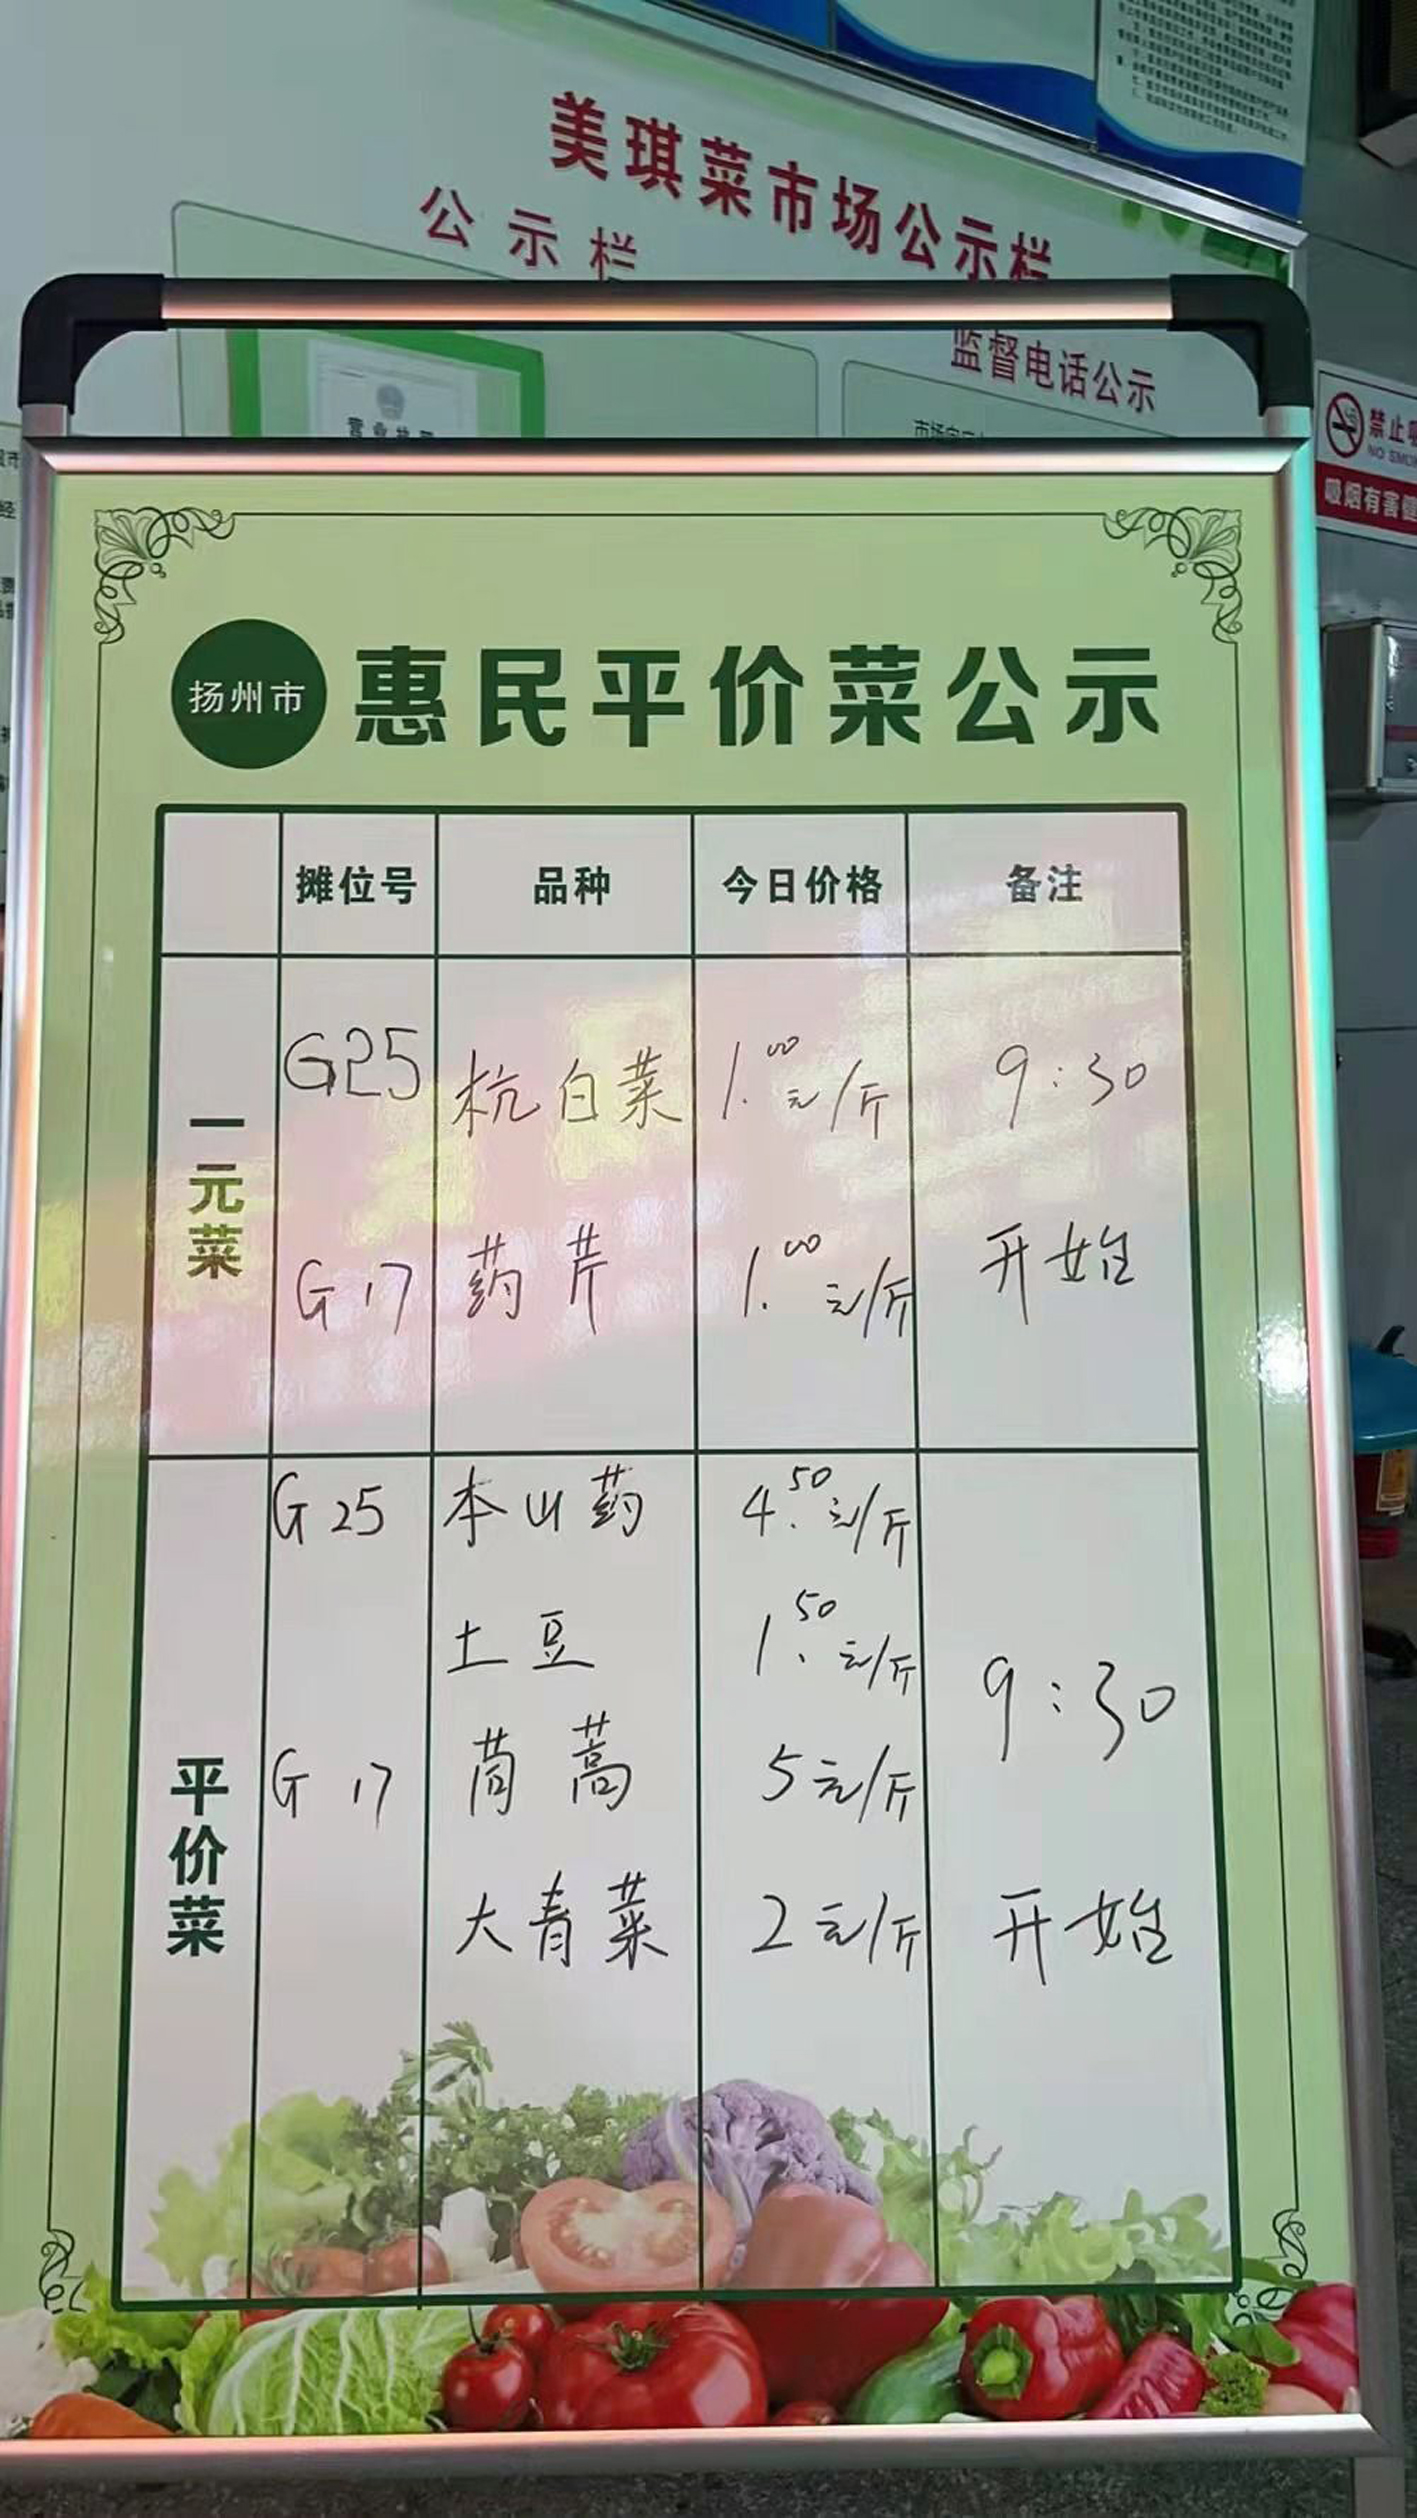 美琪菜市场公示栏
公示栏
监督电话公示
营业执照
禁止吸
NO SMOK
吸烟有害健
扬州市
惠民平价菜公示
摊位号 品种 今日价格 备注
一元菜
G25 杭白菜 1.00元/斤 9:30
G17 药芹 1.00元/斤 开始
平价菜
G25 本山药 4.50元/斤
土豆 1.50元/斤
9:30
G17 茼蒿 5元/斤
大青菜 2元/斤 开始